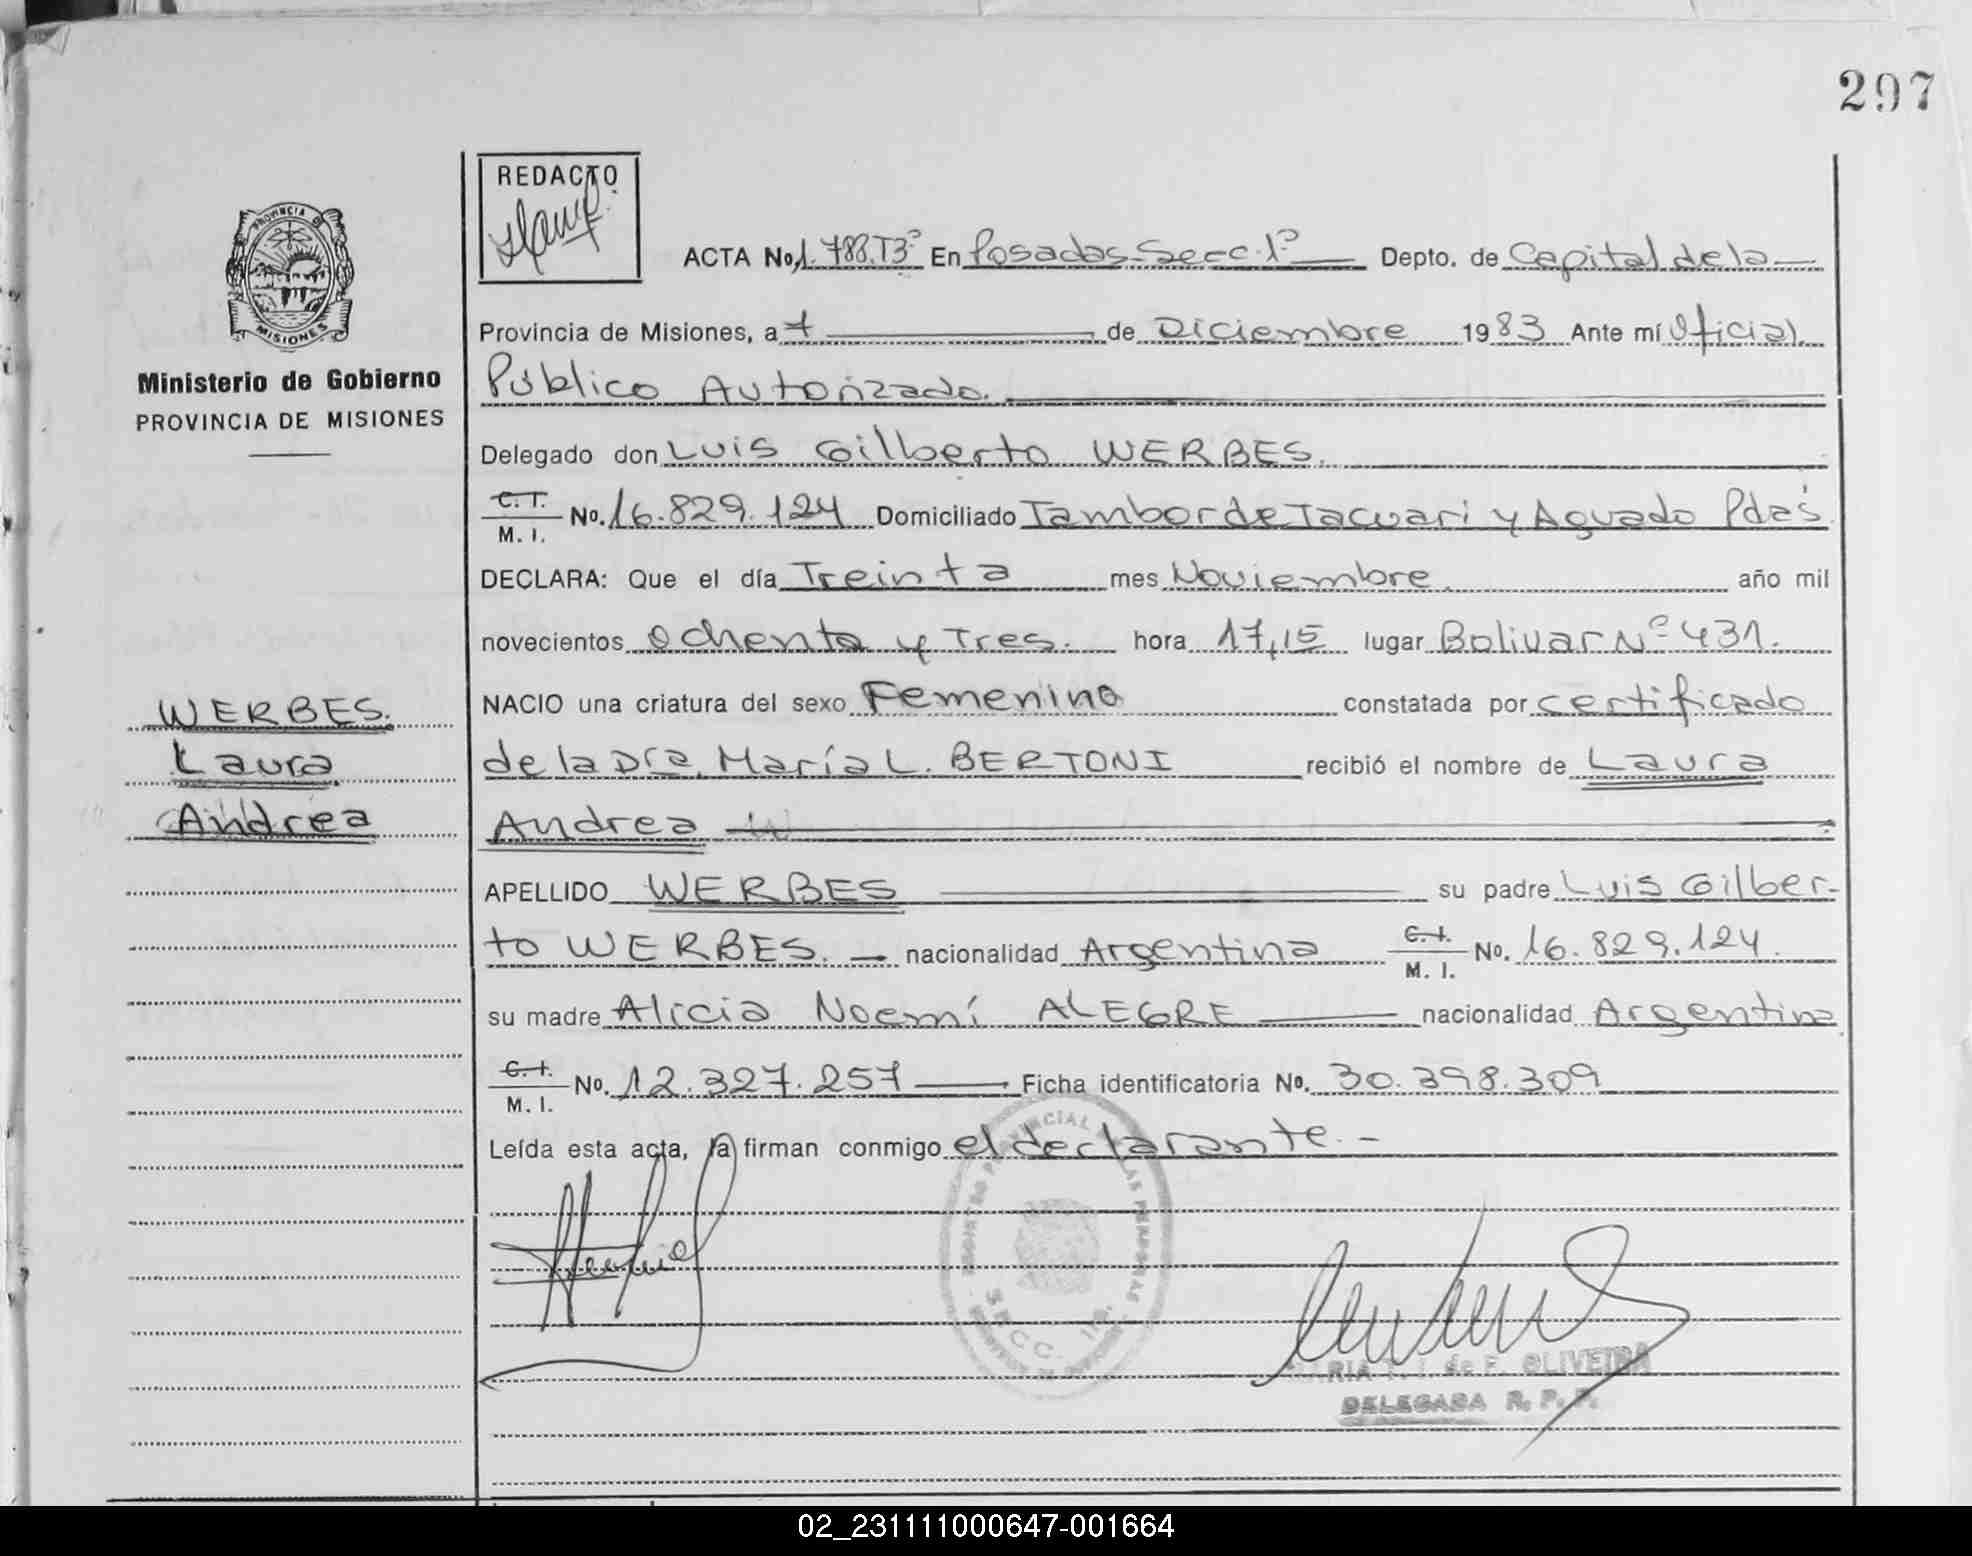 297
REDACTO
PROVINCIA DE
MISIONES
ACTA No. 1.788.T3º En Posadas-Secc.1º Depto. de Capital de la
Provincia de Misiones, a 7 de Diciembre 1983 Ante mí Oficial
Ministerio de Gobierno
Público Autorizado.
PROVINCIA DE MISIONES
Delegado don Luis Gilberto WERBES.
C. I. M. I. No. 16.829.124 Domiciliado Tambor de Tacuari y Aguado Pdas.
DECLARA: Que el día Treinta mes Noviembre. año mil
novecientos Ochenta y Tres. hora 17,15 lugar Bolivar Nº 431.
WERBES.
NACIO una criatura del sexo Femenino constatada por certificado
Laura
de la Dra. María L. BERTONI recibió el nombre de Laura
Andrea
Andrea
APELLIDO WERBES su padre Luis Gilber-
to WERBES. - nacionalidad Argentina C. I. M. I. No. 16.829.124.
su madre Alicia Noemí ALEGRE nacionalidad Argentina
C. I. M. I. No. 12.327.257 Ficha identificatoria No. 30.398.309
Leída esta acta, la firman conmigo el declarante.-
SECC. 1ra.
MARIA T. I. de F. OLIVEIRA
DELEGADA R. P. P.
02_231111000647-001664